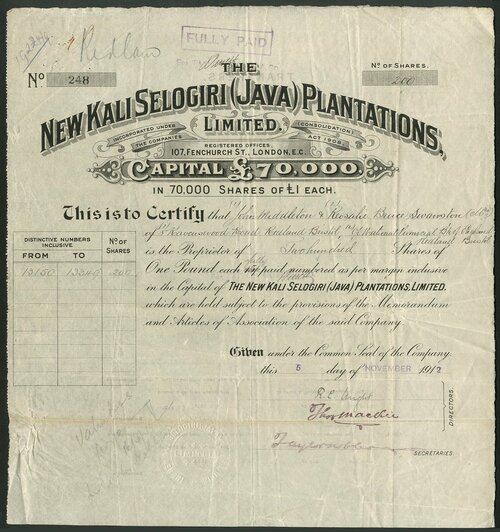 Redland
FULLY PAID
No. 248
No. OF SHARES.
200
THE
NEW KALI SELOGIRI (JAVA) PLANTATIONS,
LIMITED.
INCORPORATED UNDER THE COMPANIES (CONSOLIDATION) ACT 1908
REGISTERED OFFICES
107, FENCHURCH ST., LONDON, E.C.
CAPITAL £70,000.
IN 70,000 SHARES OF £1 EACH.
This is to Certify that John Middleton & Rosalie Bruce Swanston
of Ravenswood Road Redland Bristol
Redland Bristol
is the Proprietor of Two hundred Shares of
One Pound each fully paid, numbered as per margin inclusive
in the Capital of THE NEW KALI SELOGIRI (JAVA) PLANTATIONS, LIMITED.
which are held subject to the provisions of the Memorandum
and Articles of Association of the said Company.
DISTINCTIVE NUMBERS INCLUSIVE
No. OF SHARES
FROM TO
200
Given under the Common Seal of the Company
this 5 day of NOVEMBER 1912
DIRECTORS.
SECRETARIES.